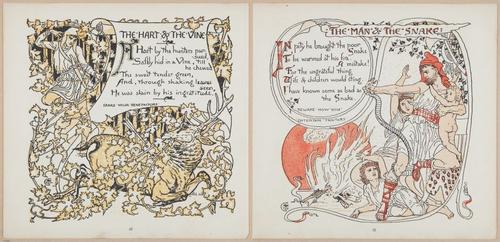 THE HART & THE VINE
A Hart by the hunters pursued,
Safely hid in a Vine, 'till
he chewed
The sweet tender green,
And, through shaking leaves
seen,
He was slain by his ingratitude.
SPARE YOUR BENEFACTORS
THE MAN & THE SNAKE
IN pity he brought the poor
Snake
To be warmed at his fire.
A mistake!
For the ungrateful thing
Wife & children would sting.
I have known some as bad as
the Snake
BEWARE HOW YOU
ENTERTAIN TRAITORS